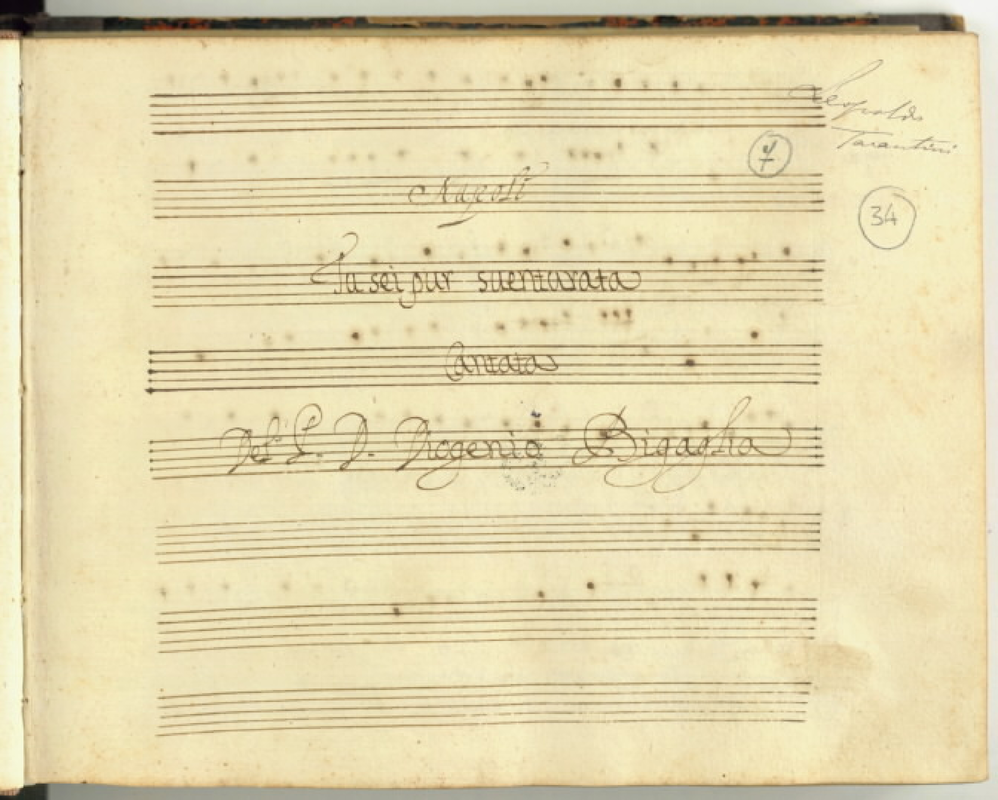 Leopoldo
Tarantini
34
Napoli
Tu sei pur suenturata
Cantata
Del P. D. Diogenio Bigaglia